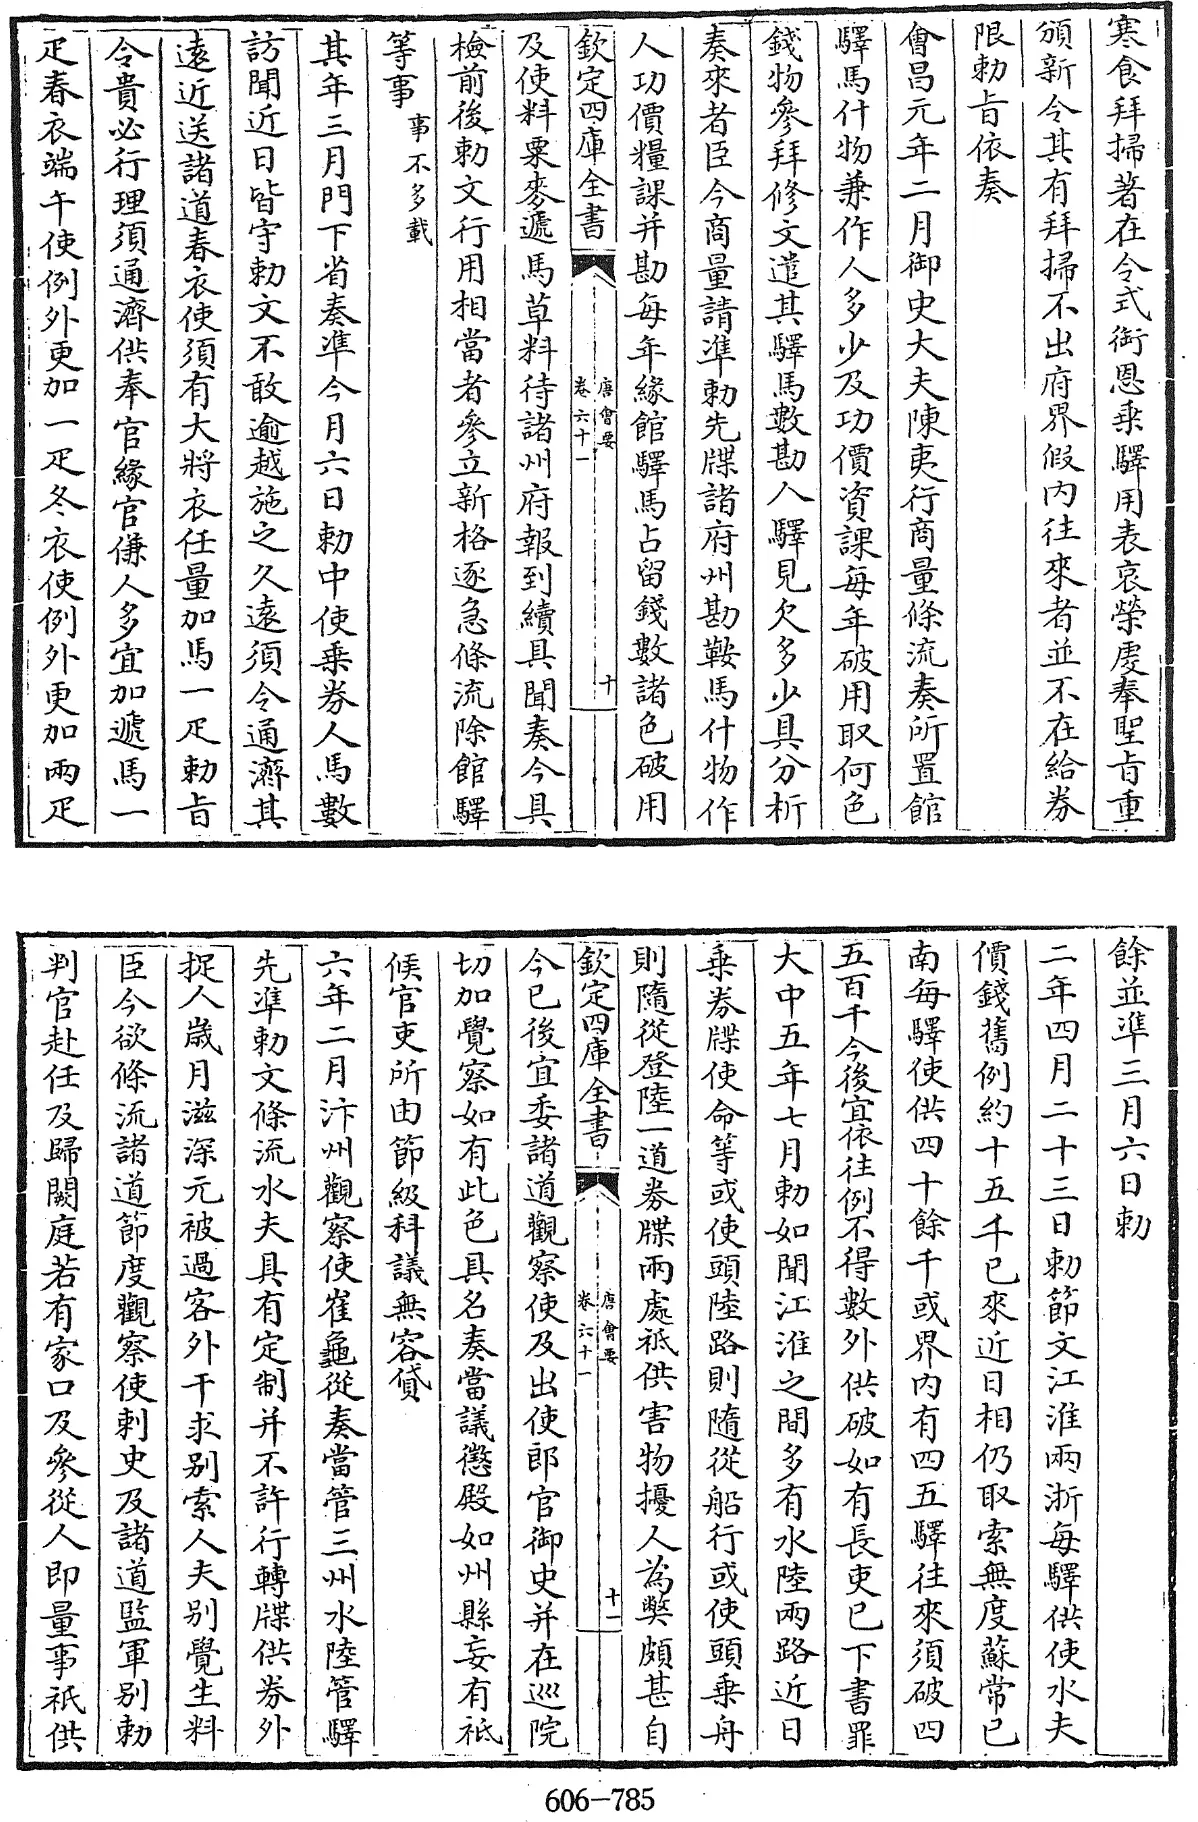 寒食拜掃著在令式銜恩乘驛用表哀榮虔奉聖旨重
頒新令其有拜掃不出府界假内往來者並不在給券
限勅旨依奏
會昌元年二月御史大夫陳夷行商量條流奏所置館
驛馬什物兼作人多少及功價資課每年破用取何色
錢物參拜修文遣其驛馬數勘人驛見欠多少具分析
奏來者臣今商量請準勅先牒諸府州勘鞍馬什物作
人功價糧課并勘每年緣館驛馬占留錢數諸色破用
欽定四庫全書
唐會要
卷六十一
十
及使料粟麥遞馬草料待諸州府報到續具聞奏今具
檢前後勅文行用相當者參立新格逐急條流除館驛
等事事不多載
其年三月門下省奏準今月六日勅中使乘券人馬數
訪聞近日皆守勅文不敢逾越施之久遠須令通濟其
遠近送諸道春衣使須有大將衣任量加馬一疋勅旨
令貴必行理須通濟供奉官緣官傔人多宜加遞馬一
疋春衣端午使例外更加一疋冬衣使例外更加兩疋
餘並準三月六日勅
二年四月二十三日勅節文江淮兩浙每驛供使水夫
價錢舊例約十五千已來近日相仍取索無度蘇常已
南每驛使供四十餘千或界内有四五驛往來須破四
五百千今後宜依往例不得數外供破如有長吏已下書罪
大中五年七月勅如聞江淮之間多有水陸兩路近日
乘券牒使命等或使頭陸路則隨從船行或使頭乘舟
則隨從登陸一道券牒兩處祗供害物擾人為弊頗甚自
欽定四庫全書
唐會要
卷六十一
十一
今已後宜委諸道觀察使及出使郎官御史并在巡院
切加覺察如有此色具名奏當議懲殿如州縣妄有祗
候官吏所由節級科議無容貸
六年二月汴州觀察使崔龜從奏當管三州水陸管驛
先準勅文條流水夫具有定制并不許行轉牒供券外
捉人歲月滋深元被過客外干求別索人夫別覺生料
臣今欲條流諸道節度觀察使刺史及諸道監軍別勅
判官赴任及歸闕庭若有家口及參從人即量事祗供
606-785